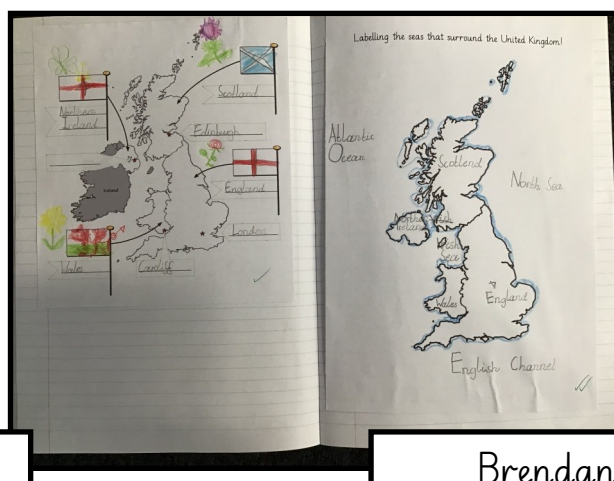 Scotland
Northern
Ireland
Edinburgh
England
Ireland
London
Wales
Cardiff
Labelling the seas that surround the United Kingdom!
Atlantic
Ocean
Scotland
North Sea
Northern
Ireland
Irish
Sea
Wales
England
English Channel
Brendan